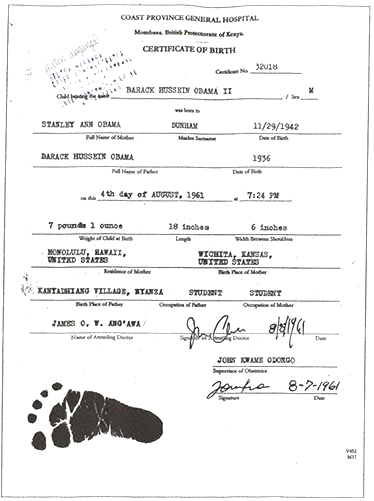 COAST PROVINCE GENERAL HOSPITAL
Mombasa, British Protectorate of Kenya.
CERTIFICATE OF BIRTH
Certificate No. 32018
Child bearing the name BARACK HUSSEIN OBAMA II / Sex M
was born to
STANLEY ANN OBAMA DUNHAM 11/29/1942
Full Name of Mother Maiden Surname Date of Birth
BARACK HUSSEIN OBAMA 1936
Full Name of Father Date of Birth
on this 4th day of AUGUST, 1961 at 7:24 PM
7 pounds 1 ounce 18 inches 6 inches
Weight of Child at Birth Length Width Between Shoulders
HONOLULU, HAWAII, WICHITA, KANSAS,
UNITED STATES UNITED STATES
Residence of Mother Birth Place of Mother
KANYADHIANG VILLAGE, NYANZA STUDENT STUDENT
Birth Place of Father Occupation of Father Occupation of Mother
JAMES O. W. ANG'AWA 8/8/1961
Name of Attending Doctor Signature of Attending Doctor Date
JOHN KWAME ODONGO
Supervisor of Obstetrics
8-7-1961
Signature Date
V452
M37